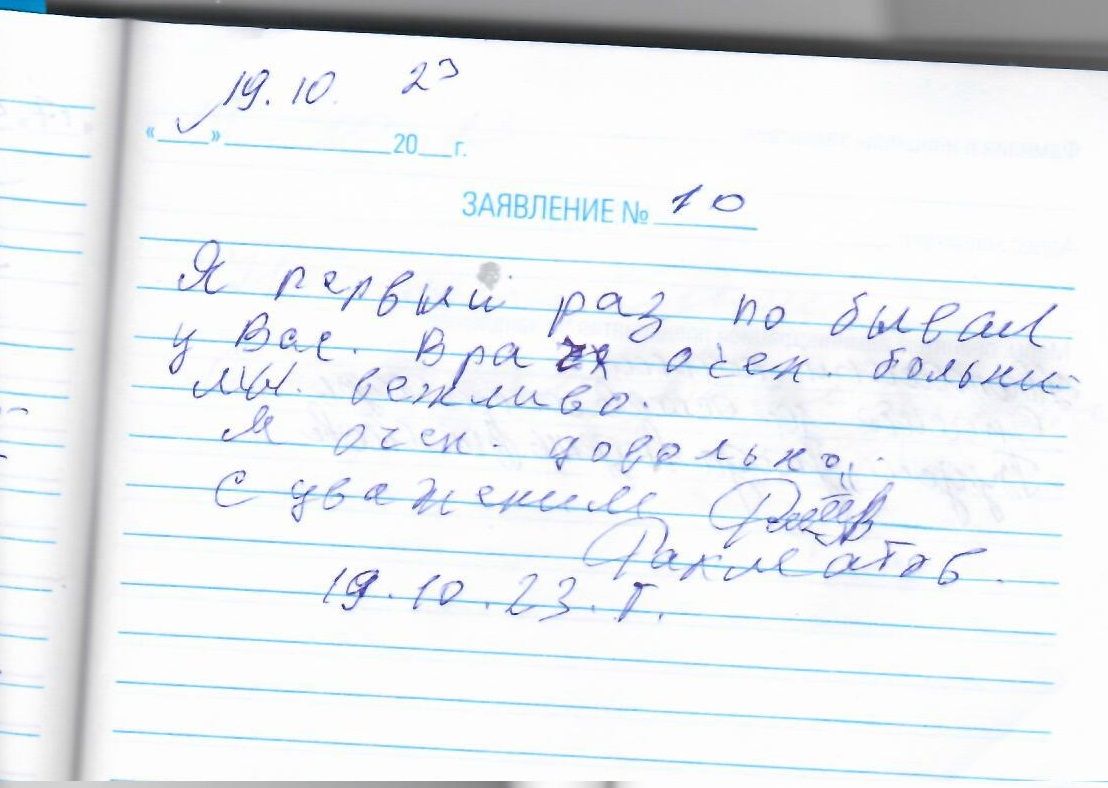 19.10. 23
« » 20 г.
ЗАЯВЛЕНИЕ № 10
Я первый раз по бывал
у Вас. Вра очен. больни
мы. вежливо.
Я очен. довольно.
С уважением
Рахматов.
19.10.23.г.